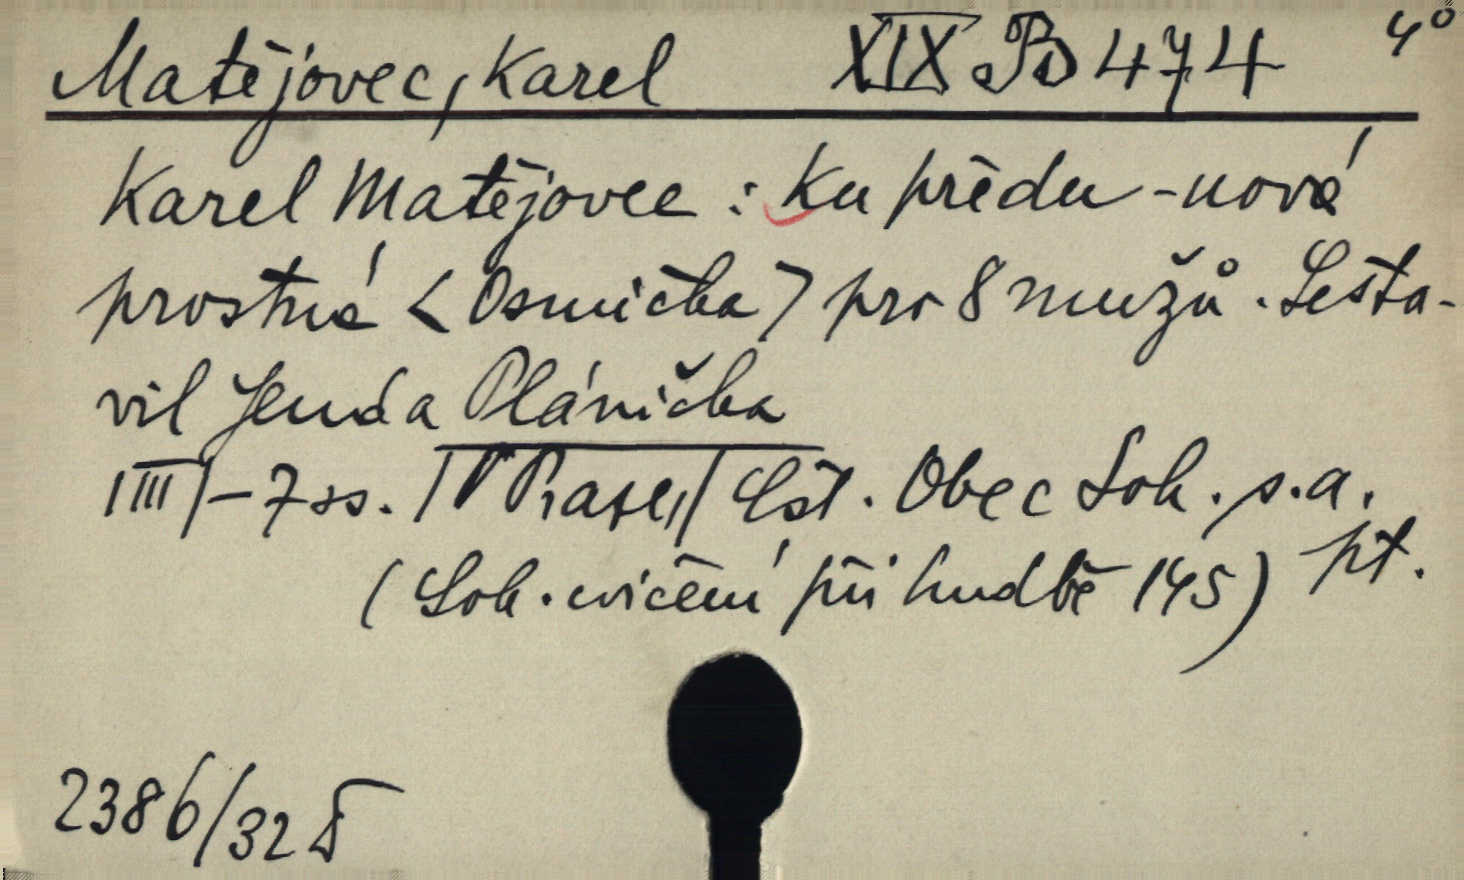 Matějovec, Karel XIX B 474 4°
Karel Matějovec: Ku předu - nové
prostné <Osmička> pro 8 mužů. Sesta-
vil Jenda Plánička
|III| - 7 ss. | V Praze,| Čsl. Obec Sok. s.a.
(Sok. cvičení při hudbě 145) př.
2386/32